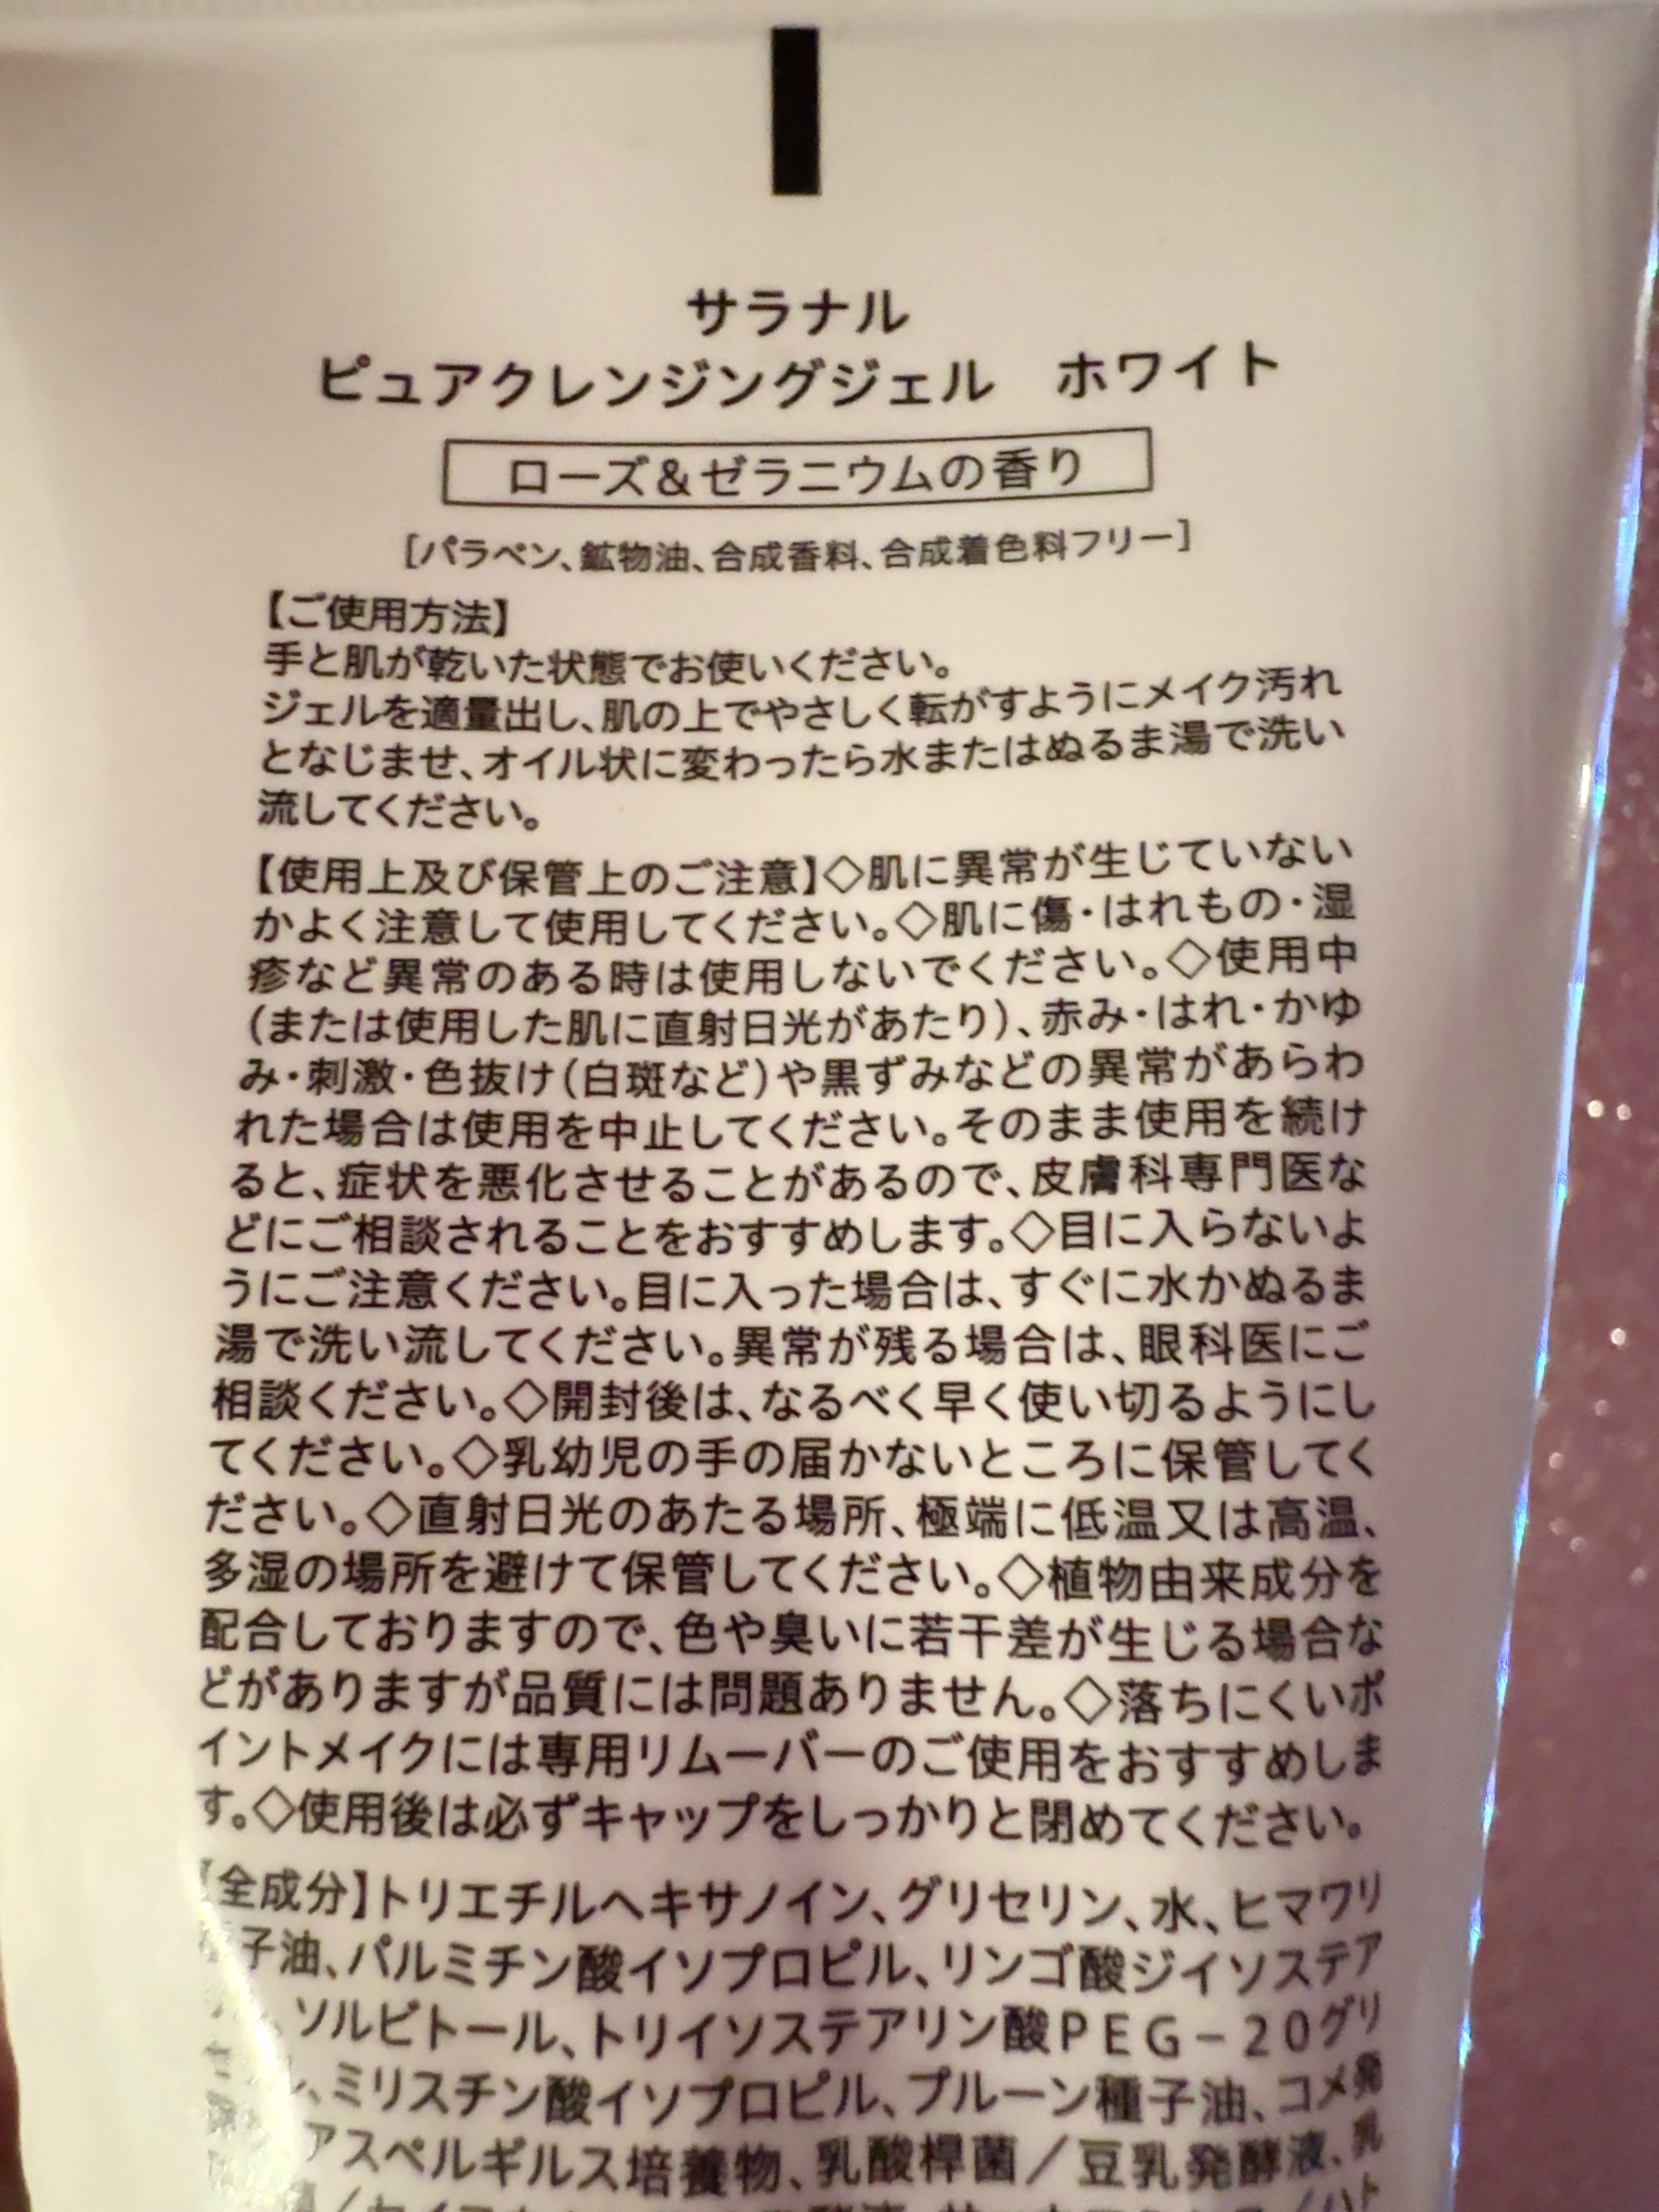 サラナル
ピュアクレンジングジェル ホワイト
ローズ&ゼラニウムの香り
[パラベン、鉱物油、合成香料、合成着色料フリー]
【ご使用方法】
手と肌が乾いた状態でお使いください。
ジェルを適量出し、肌の上でやさしく転がすようにメイク汚れ
となじませ、オイル状に変わったら水またはぬるま湯で洗い
流してください。
【使用上及び保管上のご注意】◇肌に異常が生じていない
かよく注意して使用してください。◇肌に傷・はれもの・湿
疹など異常のある時は使用しないでください。◇使用中
(または使用した肌に直射日光があたり)、赤み・はれ・かゆ
み・刺激・色抜け(白斑など)や黒ずみなどの異常があらわ
れた場合は使用を中止してください。そのまま使用を続け
ると、症状を悪化させることがあるので、皮膚科専門医な
どにご相談されることをおすすめします。◇目に入らないよ
うにご注意ください。目に入った場合は、すぐに水かぬるま
湯で洗い流してください。異常が残る場合は、眼科医にご
相談ください。◇開封後は、なるべく早く使い切るようにし
てください。◇乳幼児の手の届かないところに保管してく
ださい。◇直射日光のあたる場所、極端に低温又は高温、
多湿の場所を避けて保管してください。◇植物由来成分を
配合しておりますので、色や臭いに若干差が生じる場合な
どがありますが品質には問題ありません。◇落ちにくいポ
イントメイクには専用リムーバーのご使用をおすすめしま
す。◇使用後は必ずキャップをしっかりと閉めてください。
【全成分】トリエチルヘキサノイン、グリセリン、水、ヒマワリ
種子油、パルミチン酸イソプロピル、リンゴ酸ジイソステア
ソルビトール、トリイソステアリン酸PEG-20グリ
ミリスチン酸イソプロピル、プルーン種子油、コメ発
アスペルギルス培養物、乳酸桿菌/豆乳発酵液、乳